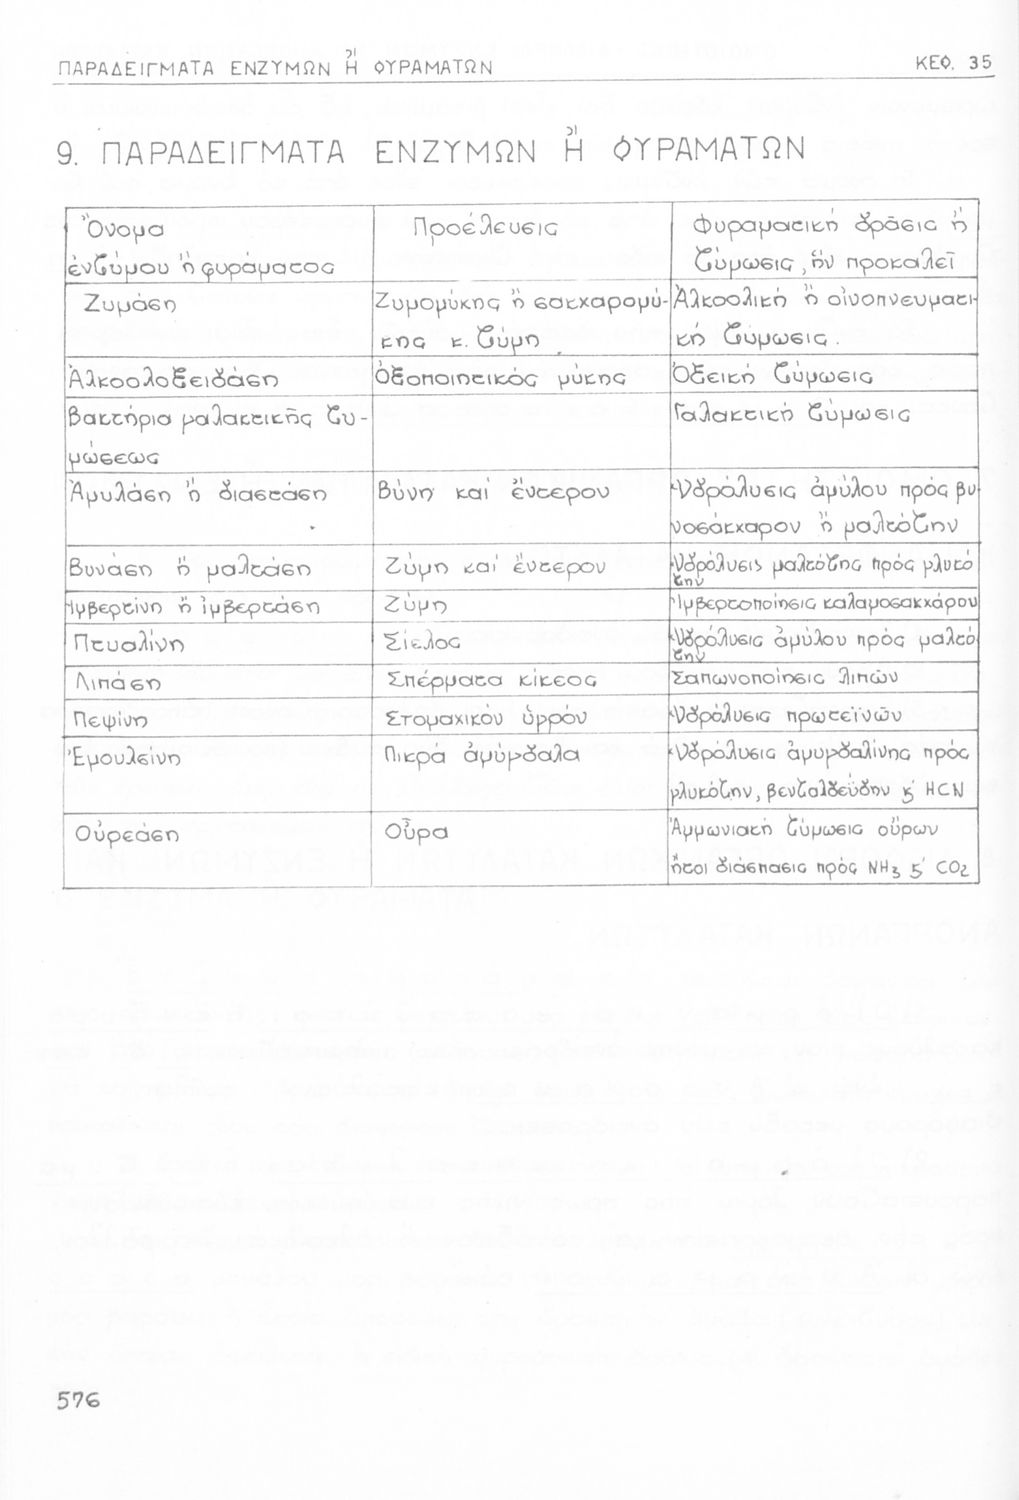 ΠΑΡΑΔΕΙΓΜΑΤΑ ΕΝΖΥΜΩΝ Ἢ ΦΥΡΑΜΑΤΩΝ ΚΕΦ. 35
9. ΠΑΡΑΔΕΙΓΜΑΤΑ ΕΝΖΥΜΩΝ Ἢ ΦΥΡΑΜΑΤΩΝ
Ὄνομα
ἐνζύμου ἢ φυράματος
Προέλευσις
Φυραματική δρᾶσις ἢ
ζύμωσις, ἣν προκαλεῖ
Ζυμάση
Ζυμομύκης ἢ σακχαρομύ-
κης κ. ζύμη
Ἀλκοολική ἢ οἰνοπνευματι-
κή ζύμωσις.
Ἀλκοολοξειδάση
Ὀξοποιητικός μύκης
Ὀξεική ζύμωσις
Βακτήρια γαλακτικῆς ζυ-
μώσεως
Γαλακτική ζύμωσις
Ἀμυλάση ἢ διαστάση
Βύνη καί ἔντερον
Ὑδρόλυσις ἀμύλου πρός βυ-
νοσάκχαρον ἢ μαλτόζην
Βυνάση ἢ μαλτάση
Ζύμη καί ἔντερον
Ὑδρόλυσις μαλτόζης πρός γλυκό
ζην
Ἰμβερτίνη ἢ ἰμβερτάση
Ζύμη
Ἰμβερτοποίησις καλαμοσακχάρου
Πτυαλίνη
Σίελος
Ὑδρόλυσις ἀμύλου πρός μαλτό
ζην
Λιπάση
Σπέρματα κίκεος
Σαπωνοποίησις λιπῶν
Πεψίνη
Στομαχικόν ὑρρόν
Ὑδρόλυσις πρωτεϊνῶν
Ἐμουλσίνη
Πικρά ἀμύγδαλα
Ὑδρόλυσις ἀμυγδαλίνης πρός
γλυκόζην, βενζαλδεΰδην ϗ HCN
Οὐρεάση
Οὖρα
Ἀμμωνιακή ζύμωσις οὔρων
ἤτοι διάσπασις πρός NH₃ ϗ CO₂
576